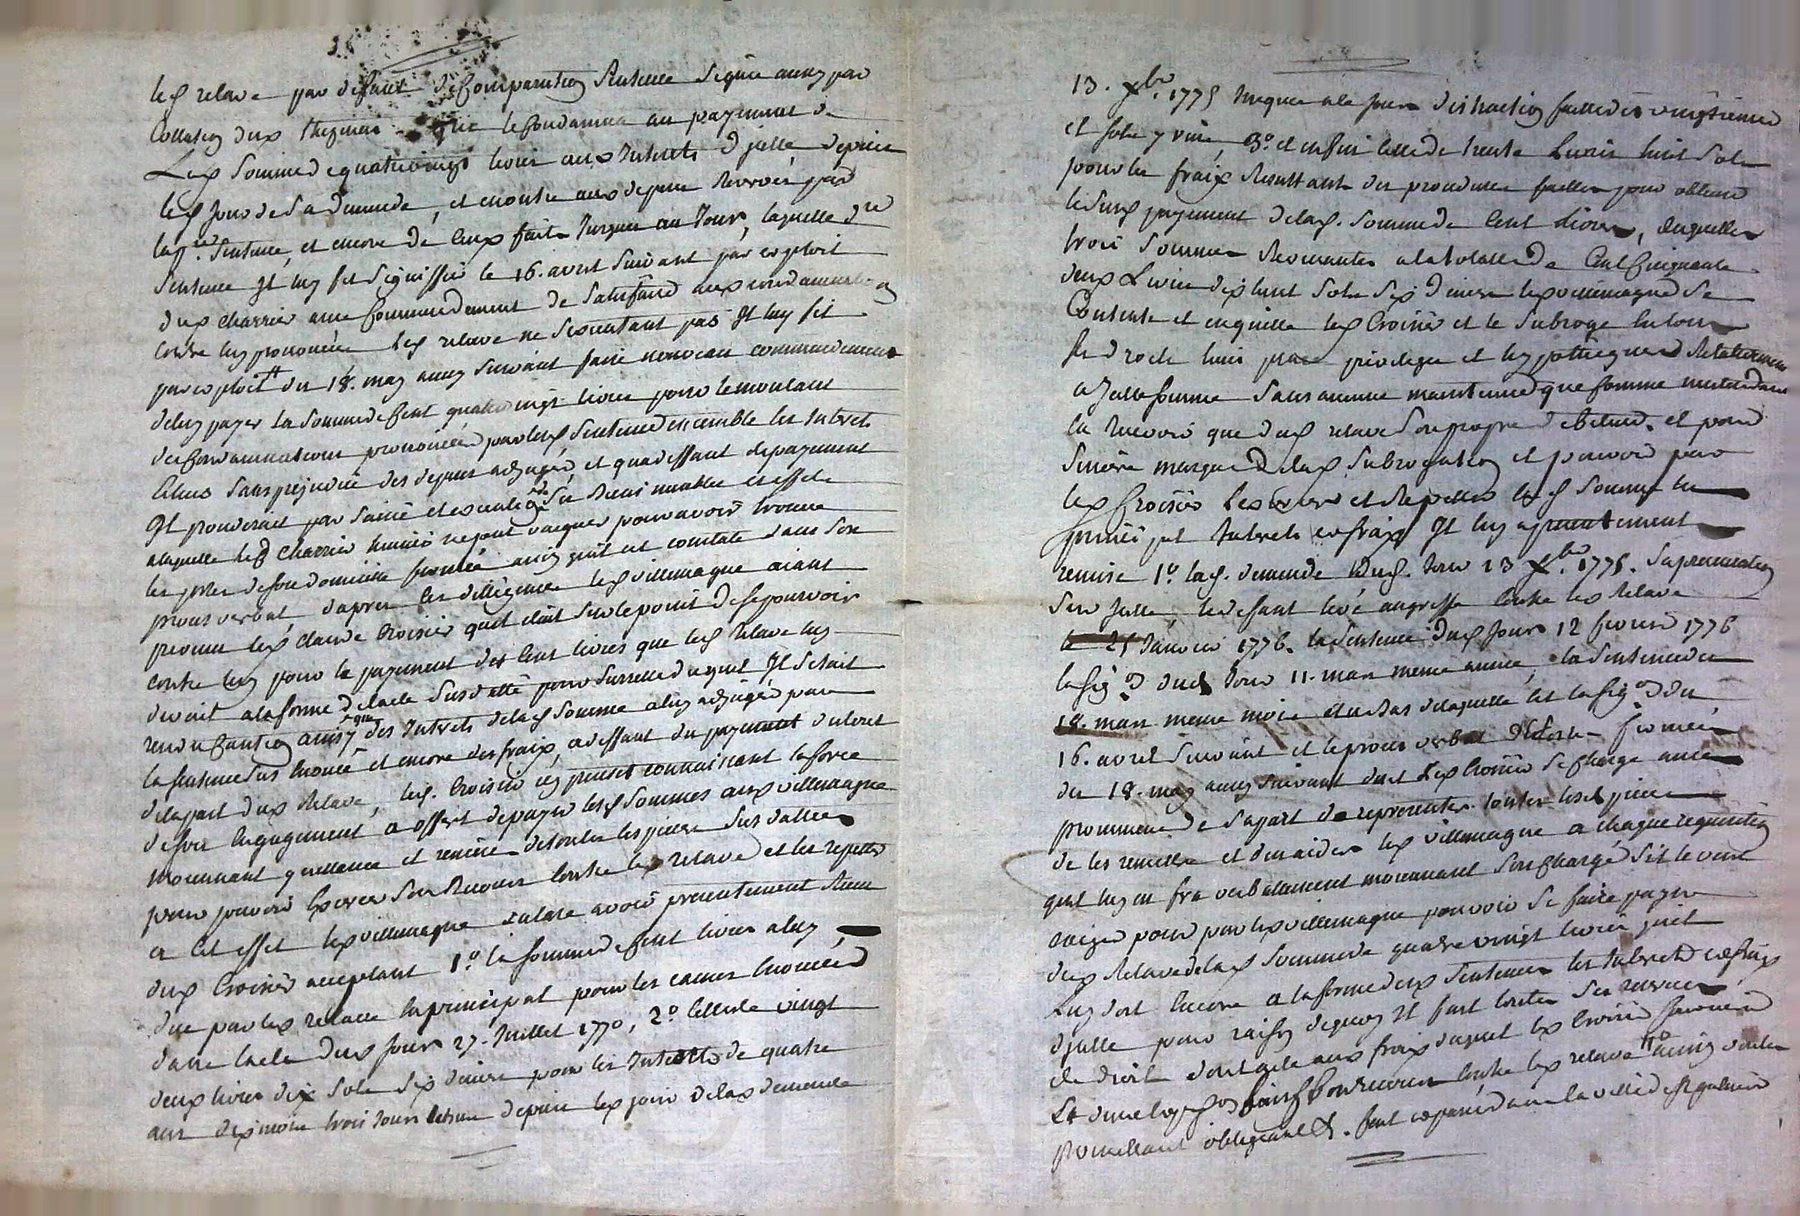 led relave par defaut de Comparution Sentence Signée aussy par
Collation dud que le Condamne au payement de
Lad Somme de quatrevingt livres aux Interets d'jcelle depuis
led Jour de la demande, et en outre aux depens
lad Sentence, et encore de Ceux faits Jusques au Jour, laquelle dte
Sentence Il luy fit Signiffier le 16. avril Suivant par exploit
dud Charrier avec Commandement de Satisfaire aux condamnations
Contre luy prononcées Led relave ne Sexecutant pas Il luy fit
par exploit du 18. may aussy Suivant faire nouveau commandement
de luy payer la Somme de Cent quatrevingt livres pour le montant
des Condamnations prononcées par lad Sentence ensemble les Interets
Sans prejudice des depens adjugés, et qua deffaut de payement
Il procederait par Saisie et execution de Ses Biens meubles et effets
a laquelle led Charrier huissier ne peut vacquer pour avoir trouvé
les portes de son domicille fermées ainsy quil est constaté dans Son
procès verbal d'apres les dilligences led villemagne aiant
prevenu led Claude Croisier quil etait Sur le point de Se pourvoir
contre luy pour le payement des Cent livres que led Relave luy
devait a la forme de lacte Susdatté pour Surette duquel Il Setait
rendu Caution ainsy que des Interets de lad Somme a luy adjugée par
la Sentence Sus Enoncée et encore des frais, a deffaut du payement du tout
de la part dud Relave, led. Croisier icy present connaissant la force
de Son Engagement a offert de payer lesd Sommes aud villemagne
moiennant quittance et remise de toutes les pieces Sus dattées
pour pouvoir Exercer Son Recours Contre led relave et les repetter
a Cet effet led villemagne avoir presentement Recu
dud Croisier acceptant 1º. la Somme de Cent livres a luy
due par led relave en principal pour les causes Enoncées
dans lacte dud Jour 27. Juillet 1770, 2º. Celle de vingt
deux livres dix Sols Six deniers pour les Interets de quatre
ans dix mois trois Jours depuis led jour de lad demande
13. Xbre. 1775 Jusques a ce Jour distraction faitte des vingtiemes
et Sols 3º. et enfin Celle de trente Livres huit Sols
pour les frais Resultants des procedures faittes pour obtenir
le payement de lad. Somme de Cent Livres, desquelles
trois Sommes Revenantes a la totalle de Cent Cinquante
deux Livres dix huit Sols Six deniers led villemagne Se
Contente et en quitte led Croisier et le Subroge en tous
Ses droits lieu place privileges et hypotheques Relativement
a jcelle Somme Sans aucune maintenue que Comme
la Recevoir que dud relave Son propre debiteur. et pour
Sincere marque de lad Subrogation et pouvoir par
led Croisier Exercer et Repetter lad Somme en
principal Interets et frais Il luy a presentement
remise 1º. lad. demande dud. Jour 13 Xbre. 1775. la presentation
Sur jcelle, le deffaut levé au greffe Contre led Relave
le 25 Janvier 1776. la Sentence dud Jour 12 fevrier 1776
la Sigon dud Jour 11. mars meme année, la Sentence du
18. mars meme mois Au Bas de laquelle est la Sigon du
16. avril Suivant et le proces verbal de portes fermées
du 18. may aussy Suivant dont led Croisier Se Charge avec
promesse de Sa part de representer toutes lesd pieces
de les remettre et den aider led villemagne a Chaque requisition
quil luy en fra verbalement moienant Son Chargé Sil le veut
exiger pour par led villemagne pouvoir Se faire payer
dud Relave de lad Somme de quatrevingt livres quil
Luy doit Encore a la forme desd Sentences les Interets et frais
d'jcelle pour raison dequoy Il fait toutes Ses reserves
de droit dont acte aux frais duquel led Croisier
Sauf Son Recours Contre led relave ainsy voulu
promettant obligeant &. fait et passé dans la ville de